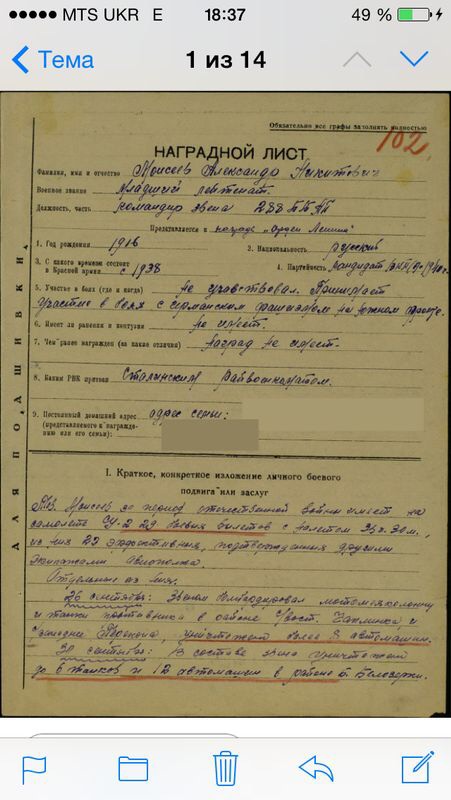 MTS UKR E 18:37 49 %
Тема 1 из 14
Обязательно все графы заполнять полностью
102
НАГРАДНОЙ ЛИСТ
Фамилия, имя и отчество Моисеев Александр Никитович
Военное звание Младший лейтенант.
Должность, часть командир звена 288
Представляется к награде "Орден Ленина"
1. Год рождения 1916 2. Национальность русский
3. С какого времени состоит в Красной армии с 1938 4. Партийность кандидат
5. Участие в боях (где и когда) не участвовал. Принимает
участие в боях с германским фашизмом на южном фронте.
6. Имеет ли ранения и контузии не имеет.
7. Чем ранее награжден (за какие отличия) наград не имеет.
8. Каким РВК призван Сталинским Райвоенкоматом.
9. Постоянный домашний адрес адрес семьи:
(представляемого к награждению или его семьи):
ДЛЯ ПОДШИВКИ
I. Краткое, конкретное изложение личного боевого
подвига или заслуг
Тов. Моисеев за период отечественной войны имеет на
самолете СУ-2 29 боевых вылетов с налетом
из них 29 эффективных, подтвержденных другими
экипажами авиаполка.
Отдельные из них:
26 сентября: звеном бомбардировал мотомехколонну
и танки противника в районе Чаплинка и
западнее Перекопа, уничтожено более 8 автомашин.
30 сентября: в составе звена уничтожено
до танков и 12 автомашин в районе